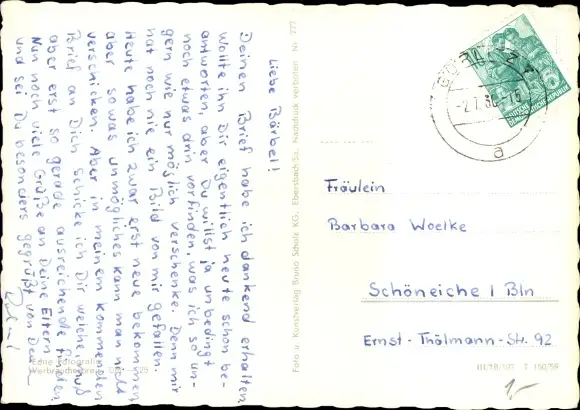 Liebe Bärbel!
Deinen Brief habe ich dankend erhalten
Wollte ihn Dir eigentlich heute schon be-
antworten, aber Du willst ja unbedingt
noch etwas drin vorfinden, was ich so un-
gern wie nur möglich verschenke. Denn mir
hat noch nie ein Bild von mir gefallen.
Heute habe ich zwar erst neue bekommen
aber sowas unmögliches kann man nicht
verschicken. Aber in meinem kommenden
Brief an Dich schicke ich Dir welche, muß
aber erst so gerade ausreichende finden.
Nun noch viele Grüße an Deine Eltern
und sei Du besonders gegrüßt von Dein
Echte Fotografie
Foto u. Kunstverlag Bruno Scholz KG., Ebersbach/Sa. Nachdruck verboten Nr. 777
Fräulein
Barbara Woelke
Schöneiche / Bln
Ernst-Thälmann-Str. 92
1,-